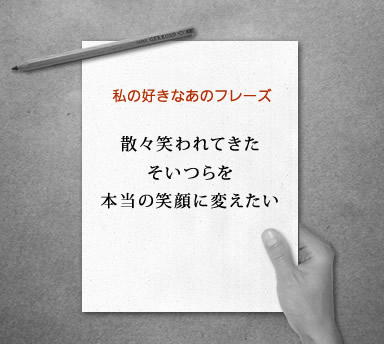 私の好きなあのフレーズ
散々笑われてきた
そいつらを
本当の笑顔に変えたい